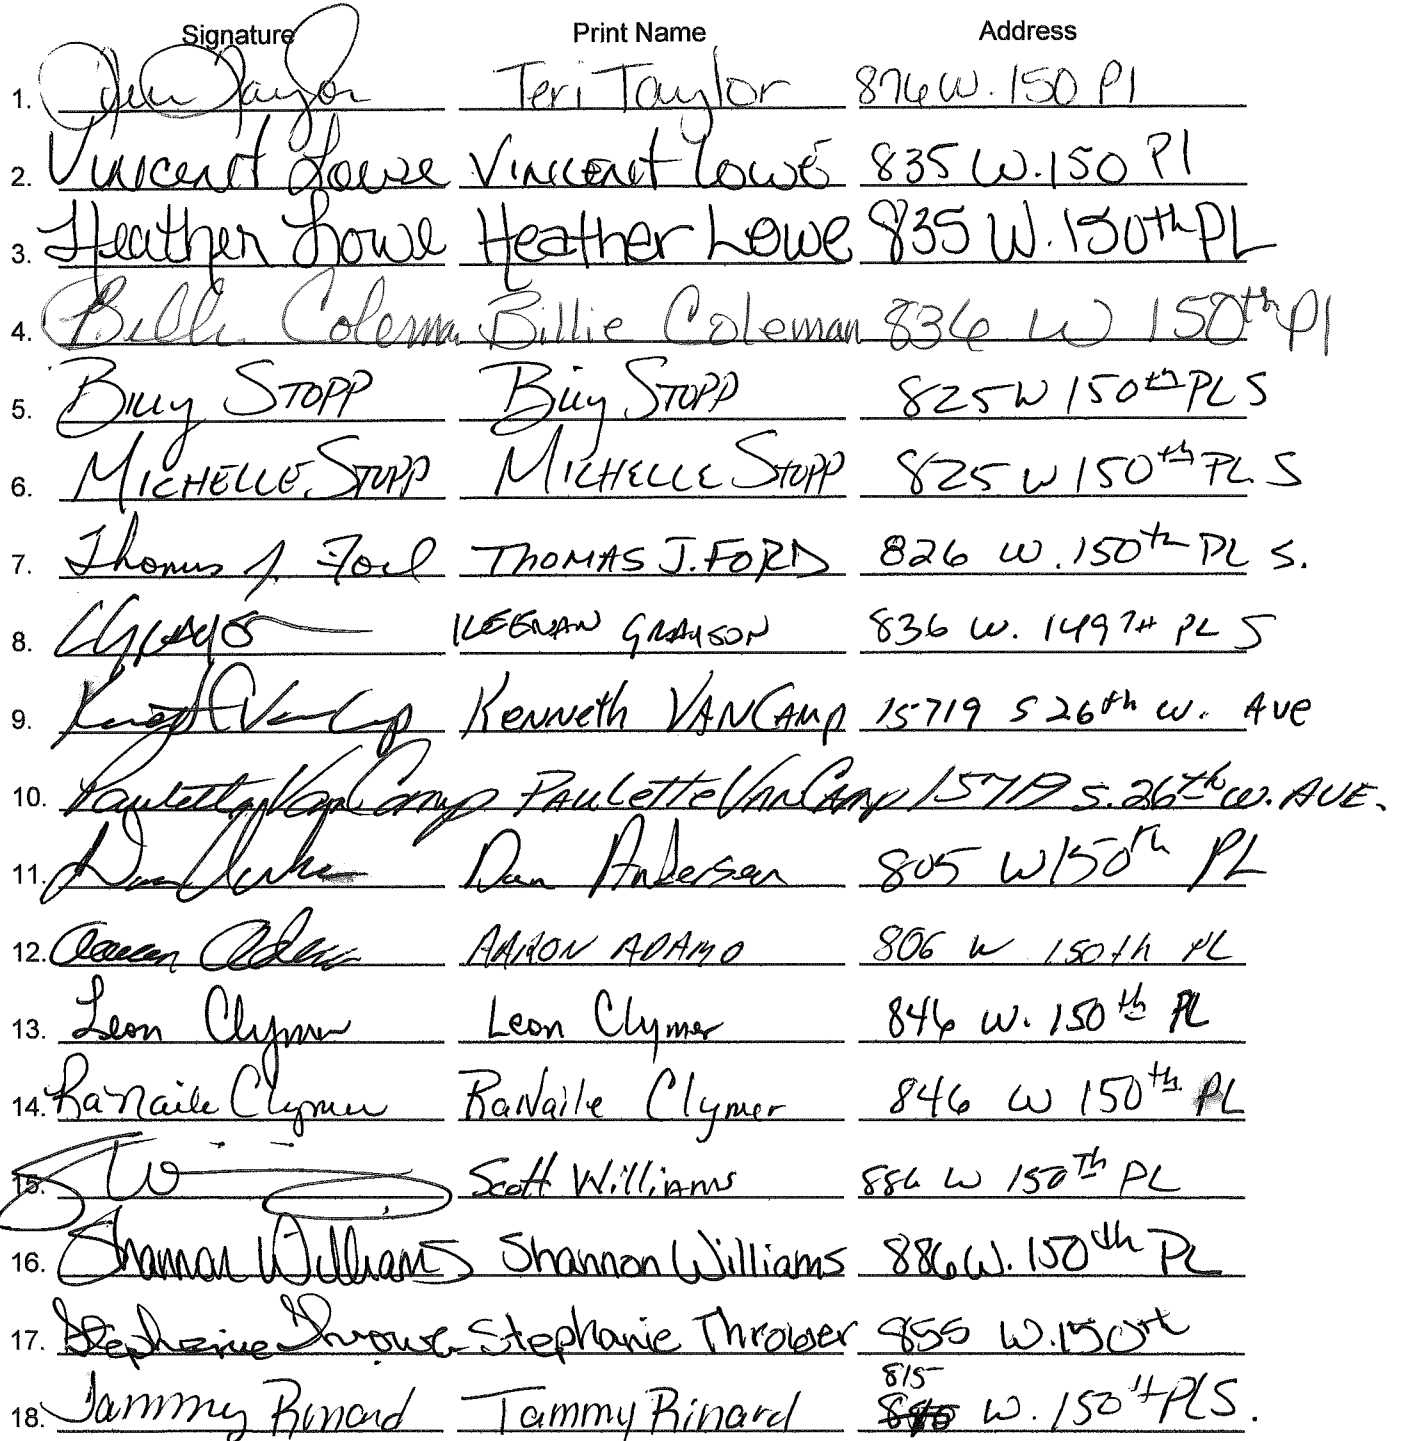 Signature Print Name Address
1. Teri Taylor Teri Taylor 876 W. 150 Pl
2. Vincent Lowe Vincent Lowe 835 W. 150 Pl
3. Heather Lowe Heather Lowe 835 W. 150th PL
4. Billie Coleman Billie Coleman 836 W 150th Pl
5. Billy Stopp Billy Stopp 825 W 150th PL S
6. MICHELLE STOPP MICHELLE STOPP 825 W 150th PL S
7. Thomas J. Ford THOMAS J. FORD 826 W. 150th PL S.
8. KEENAN GRAYSON 836 W. 149TH PL S
9. Kenneth VanCamp Kenneth VANCAMP 15719 S 26th W. Ave
10. Paulette VanCamp PAULette VanCamp 15719 S. 26th W. AVE.
11. Dan Andersen 805 W 150th PL
12. Aaron Adamo AARON ADAMO 806 W 150th PL
13. Leon Clymer Leon Clymer 846 W. 150th PL
14. RaNaile Clymer RaNaile Clymer 846 W 150th PL
15. Scott Williams 886 W 150Th PL
16. Shannon Williams Shannon Williams 886 W. 150th PL
17. Stephanie Thrower Stephanie Thrower 855 W. 150th
815
18. Tammy Rinard Tammy Rinard W. 150th PL S.